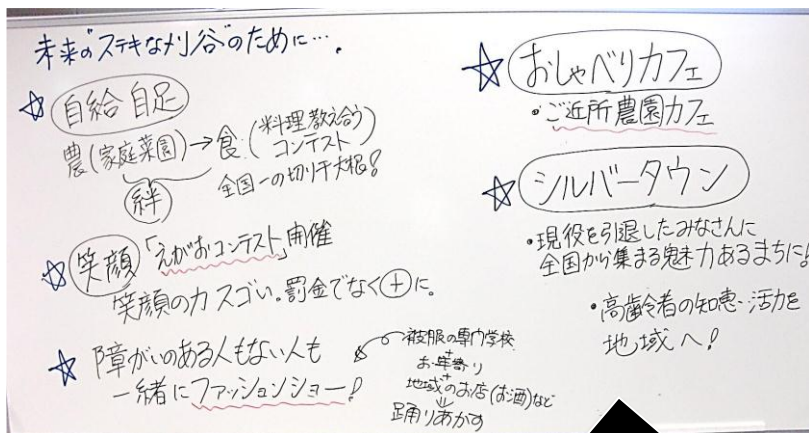 未来の"ステキな刈谷"のために….
☆ 自給自足
農(家庭菜園)→食(料理教え合う
コンテスト)
絆
全国一の切り干大根!
☆ 笑顔 「えがおコンテスト」開催
笑顔の力スゴい。罰金でなく⊕に。
☆ 障がいのある人もない人も
一緒にファッションショー!
被服の専門学校
+
お年寄り
+
地域のお店(お酒)など
⇓
踊りあかす
☆ おしゃべりカフェ
・ご近所農園カフェ
☆ シルバータウン
・現役を引退したみなさんに
全国から集まる魅力あるまちに!
・高齢者の知恵・活力を
地域へ!